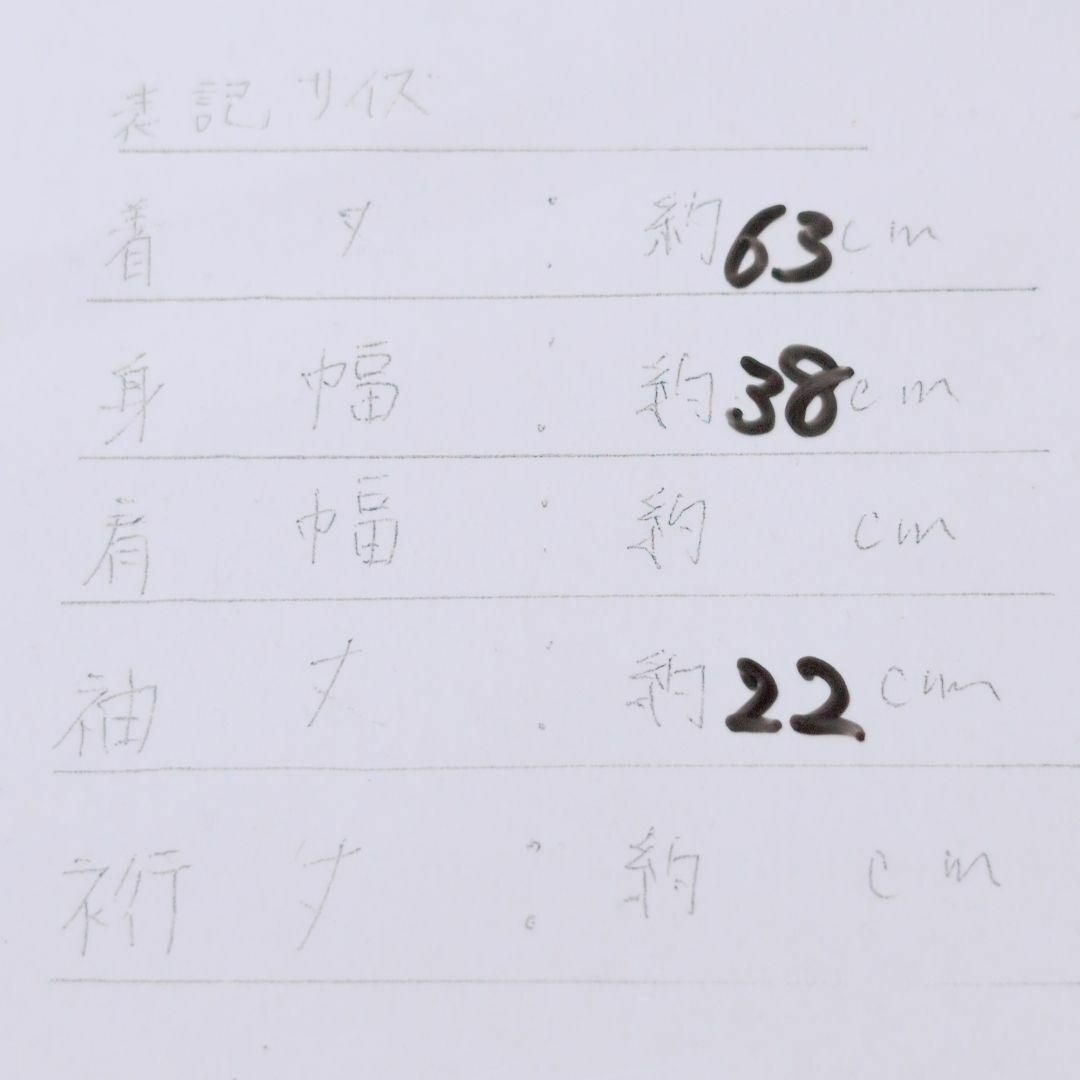 表記サイズ
着 丈 : 約63cm
身 幅 : 約38cm
肩 幅 : 約 cm
袖 丈 : 約22cm
裄 丈 : 約 cm